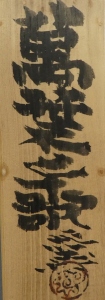 萬葉之歌